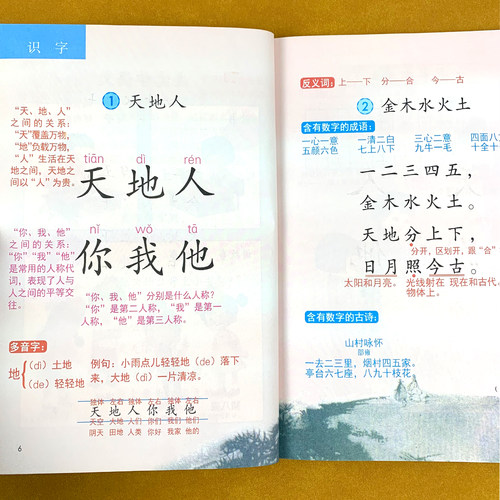 识字
① 天地人
“天、地、人”
之间的关系:
“天”覆盖万物,
“地”负载万物,
“人”生活在天
地之间,天地之
间以“人”为贵。
tiān dì rén
天地人
“你、我、他”
之间的关系:
“你”“我”“他”
是常用的人称代
词,表现了人与
人之间的平等交
往。
nǐ wǒ tā
你我他
“你、我、他”分别是什么人称?
“你”是第二人称,“我”是第一
人称,“他”是第三人称。
多音字:
地
(dì)土地
(de)轻轻地
例句:小雨点儿轻轻地(de)落下
来,大地(dì)一片清凉。
独体 左右 独体 左右 独体 左右
天地人你我他
天空 大地 人们 你们 我们 他们
阴天 田地 人类 你好 我家 他的
6
反义词: 上——下 分——合 今——古
② 金木水火土
含有数字的成语:
一心一意 一清二白 三心二意 四面八
五颜六色 七上八下 九牛一毛 十全十
一二三四五,
金木水火土。
天地分上下,
分开,区划开,跟“合”
日月照今古。
太阳和月亮。 光线射在 现在和古代。
物体上。
含有数字的古诗:
山村咏怀
邵雍
一去二三里,烟村四五家。
亭台六七座,八九十枝花。